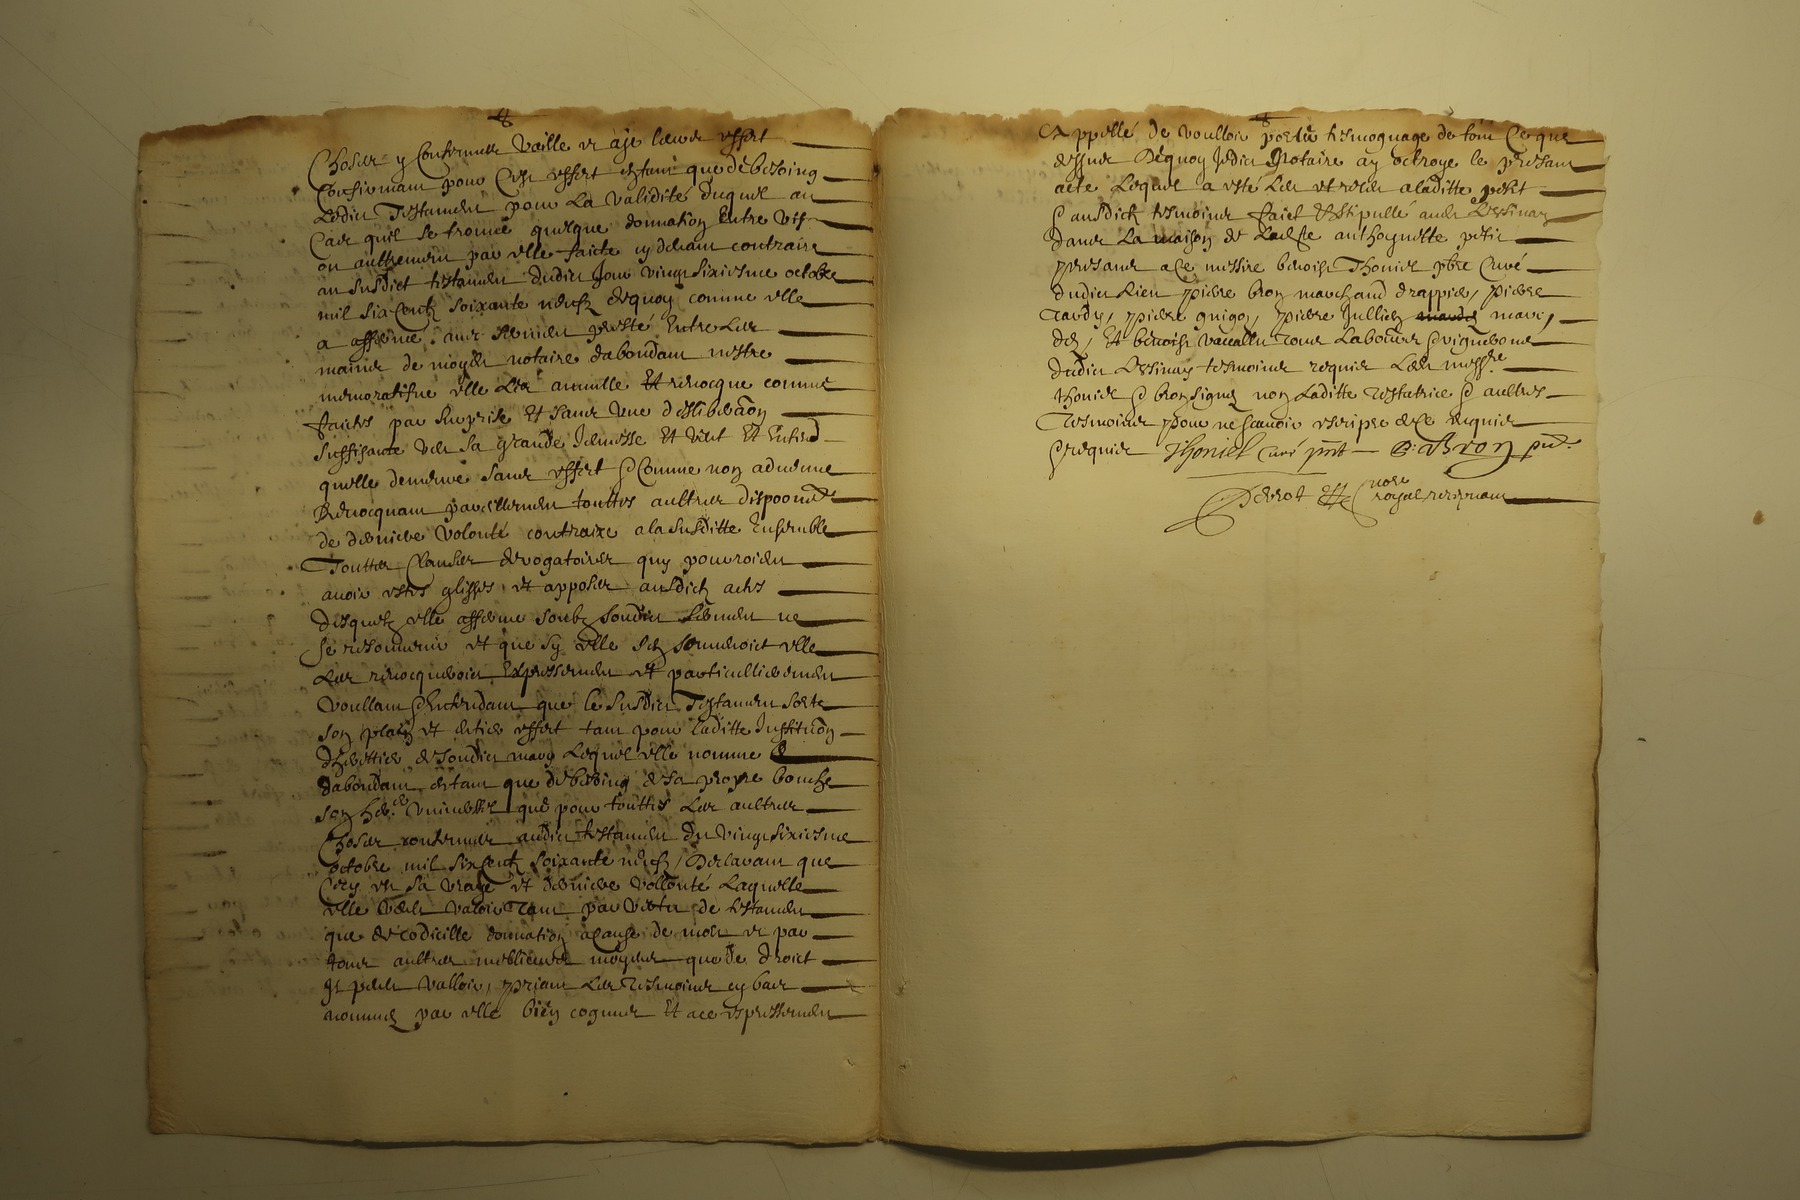 Choses y Contenues Vaille et aye leurs effect
Confirmant pour Cest effect en tant que de besoing
Ledict Testament pour La validité duquel au
Cas quil se trouve quelque donnation Entre vifs
ou aultrement par elle faicte cy devant contraire
au susdict testament dudict Jour vingt sixiesme octobre
mil six Centz soixante neufz dequoy comme elle
a affirmé aux serment presté Entre Les
mains de moydit notaire dabondant nestre
memoratifve elle Les annulle Et revocque comme
faictes par surprise Et sans une deliberaon
suffisante veu sa grande
quelle demeure sans effect & Comme non advenue
Revocquant pareillement touttes aultres
de derniere volonté contraire a la susditte Ensemble
Touttes Clauses derogatoires quy pourroient
avoir estes glisses et apposes ausdictz actes
desquelz elle afferme soubz sondict serment ne
se resouvenir et que sy elle sen souvenoict elle
Les revocqueroict Expressement et particullierement
Voullant & Entendant que le susdict Testament sorte
son plain et entier effect tant pour laditte Institution
dheritier de sondict mary Lequel elle nomme
dabondant en tant que de besoing de sa propre bouche
son her. universel que pour touttes Les aultres
Choses contenues audict testament du vingt sixiesme
octobre mil six Centz soixante neufz, Declarant que
Cecy est sa vraye et derniere vollonté Laquelle
elle veult valoir Tant par vertu de testament
que de codicille donnation a cause de mort et par
tous aultres meilleures moyens que de droict
Il peult valloir, priant Les Tesmoings cy bas
nommes par elle bien cognus Et a ce expressement
Appellé de voulloir porter tesmognage de tout Ce que
dessus Dequoy Jedict Notaire ay octroye le present
acte Lequel a esté Leu et releu a laditte petit
& ausdictz tesmoings faict & stipullé audict Lessinay
dans La maison de Ladicte anthoynette petit
presans a ce messire benoist Thoniel pbre Curé
dudict Lieu pierre bron marchand drappier, pierre
Tardy, pierre guigon, pierre Jullien mari,
den, Et benoist Tous Laboureur & vignerons
dudict Lessinay tesmoings requis Ledit messre
thoniel & bron signes non Laditte Testatrice & aultres
Tesmoings pour ne scavoir escripre de Ce enquis
& requis Thoniel Curé pnt P. Bron pnt
Perrot nore
royal recepvant